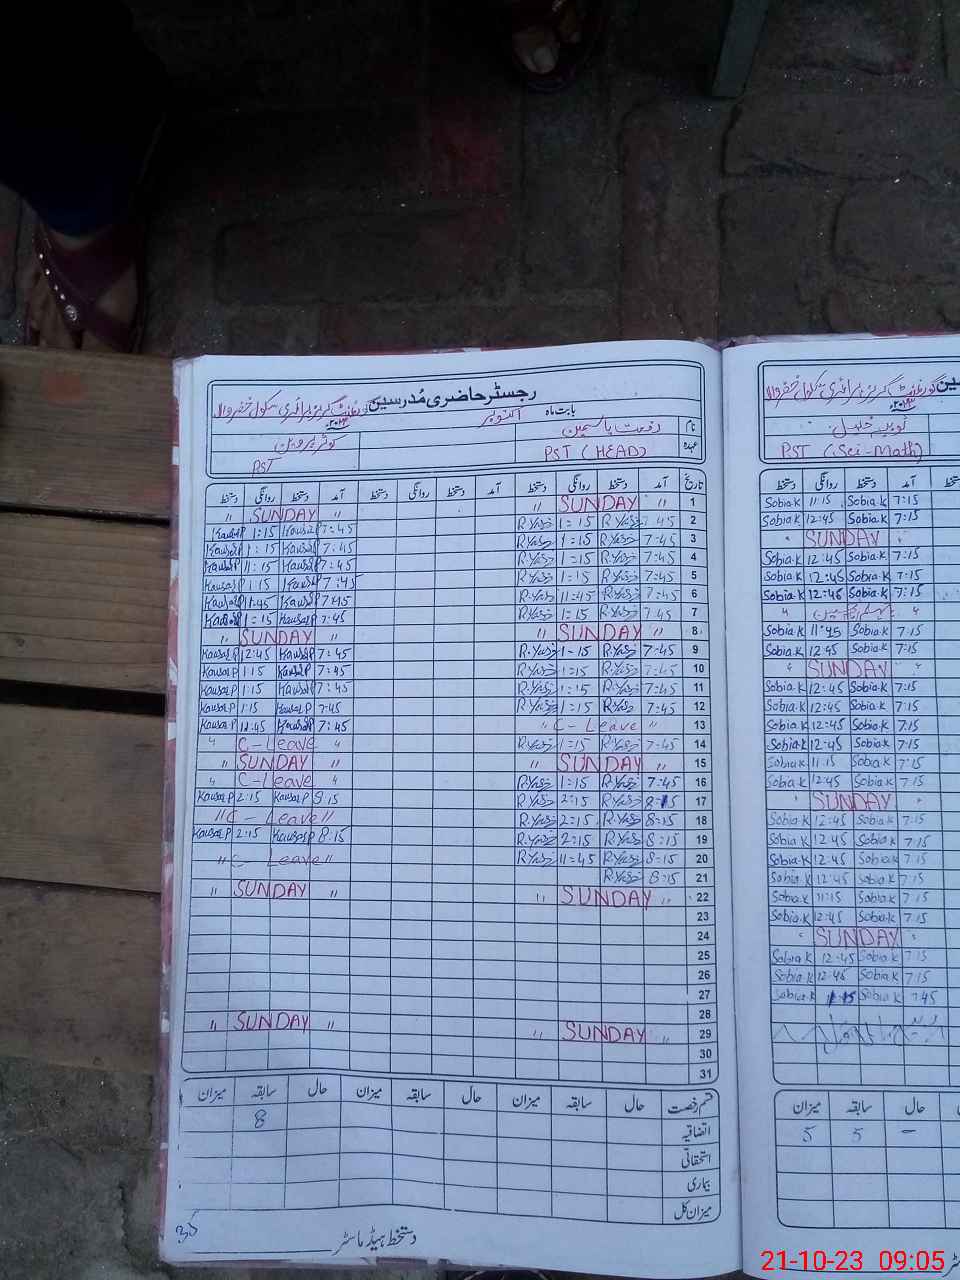 رجسٹر حاضری مُدرسین گورنمنٹ گرلز پرائمری سکول خضروالہ
بابت ماہ اکتوبر ۲۰۲۳ء
نام رفعت یاسمین کوثر پروین
عہدہ PST (HEAD) PST
تاریخ آمد دستخط روانگی دستخط آمد دستخط روانگی دستخط آمد دستخط روانگی دستخط
1 " SUNDAY " " SUNDAY "
2 7:45 1:15 7:45 Kausar P 1:15 Kausar P
3 7:45 1:15 7:45 Kausar P 1:15 Kausar P
4 7:45 1:15 7:45 Kausar P 11:15 Kausar P
5 7:45 1:15 7:45 Kausar P 1:15 Kausar P
6 7:45 11:45 7:45 Kausar P 11:45 Kausar P
7 7:45 1:15 7:45 Kausar P 1:15 Kausar P
8 " SUNDAY " " SUNDAY "
9 7:45 1-15 7:45 Kausar P 12:45 Kausar P
10 7:45 1:15 7:45 Kausar P 1:15 Kausar P
11 7:45 1:15 7:45 Kausar P 1:15 Kausar P
12 7:45 1:15 7:45 Kausar P 1:15 Kausar P
13 " C-Leave " 7:45 Kausar P 12:45 Kausar P
14 7:45 1:15 " C-Leave "
15 " SUNDAY " " SUNDAY "
16 7:45 1:15 " C-Leave "
17 8:15 2:15 8:15 Kausar P 2:15 Kausar P
18 8:15 2:15 " C-Leave "
19 8:15 2:15 8:15 Kausar P 2:15 Kausar P
20 8:15 11:45 " C-Leave "
21 8:15
22 " SUNDAY " " SUNDAY "
23
24
25
26
27
28
29 " SUNDAY " " SUNDAY "
30
31
قسم رخصت حال سابقہ میزان حال سابقہ میزان حال سابقہ میزان
اتفاقیہ 8
استحقاقی
بیماری
میزان کل
دستخط ہیڈ ماسٹر
گورنمنٹ گرلز پرائمری سکول خضروالہ
۲۰۲۳ء
ثوبیہ خلیل
PST (Sci-Math)
دستخط روانگی دستخط آمد
Sobia.K 11:15 Sobia.K 7:15
Sobia.K 12:45 Sobia.K 7:15
" SUNDAY "
Sobia.K 12:45 Sobia.K 7:15
Sobia.K 12:45 Sobia.K 7:15
Sobia.K 12:45 Sobia.K 7:15
Sobia.K 11:45 Sobia.K 7:15
Sobia.K 12:45 Sobia.K 7:15
" SUNDAY "
Sobia.K 12:45 Sobia.K 7:15
Sobia.K 12:45 Sobia.K 7:15
Sobia.K 12:45 Sobia.K 7:15
Sobia.K 12:45 Sobia.K 7:15
Sobia.K 11:15 Sobia.K 7:15
Sobia.K 12:45 Sobia.K 7:15
" SUNDAY "
Sobia.K 12:45 Sobia.K 7:15
Sobia.K 12:45 Sobia.K 7:15
Sobia.K 12:45 Sobia.K 7:15
Sobia.K 12:45 Sobia.K 7:15
Sobia.K 11:15 Sobia.K 7:15
Sobia.K 12:45 Sobia.K 7:15
" SUNDAY "
Sobia.K 12:45 Sobia.K 7:15
Sobia.K 12:45 Sobia.K 7:15
Sobia.K 11:15 Sobia.K 7:45
میزان سابقہ حال
5 5 -
21-10-23 09:05